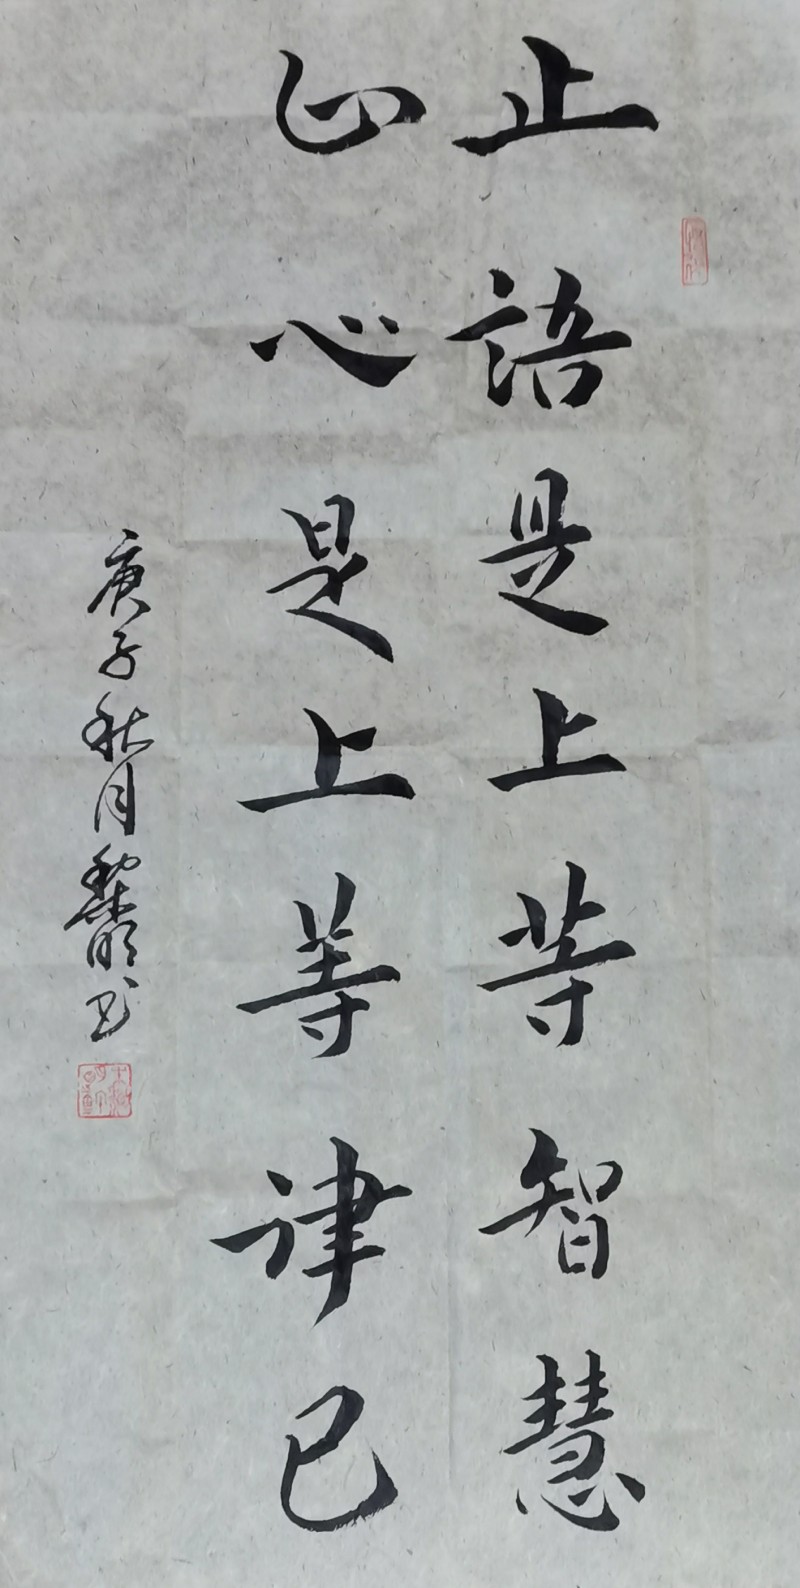 止語是上等智慧
止心是上等律己
庚子秋月黎明书